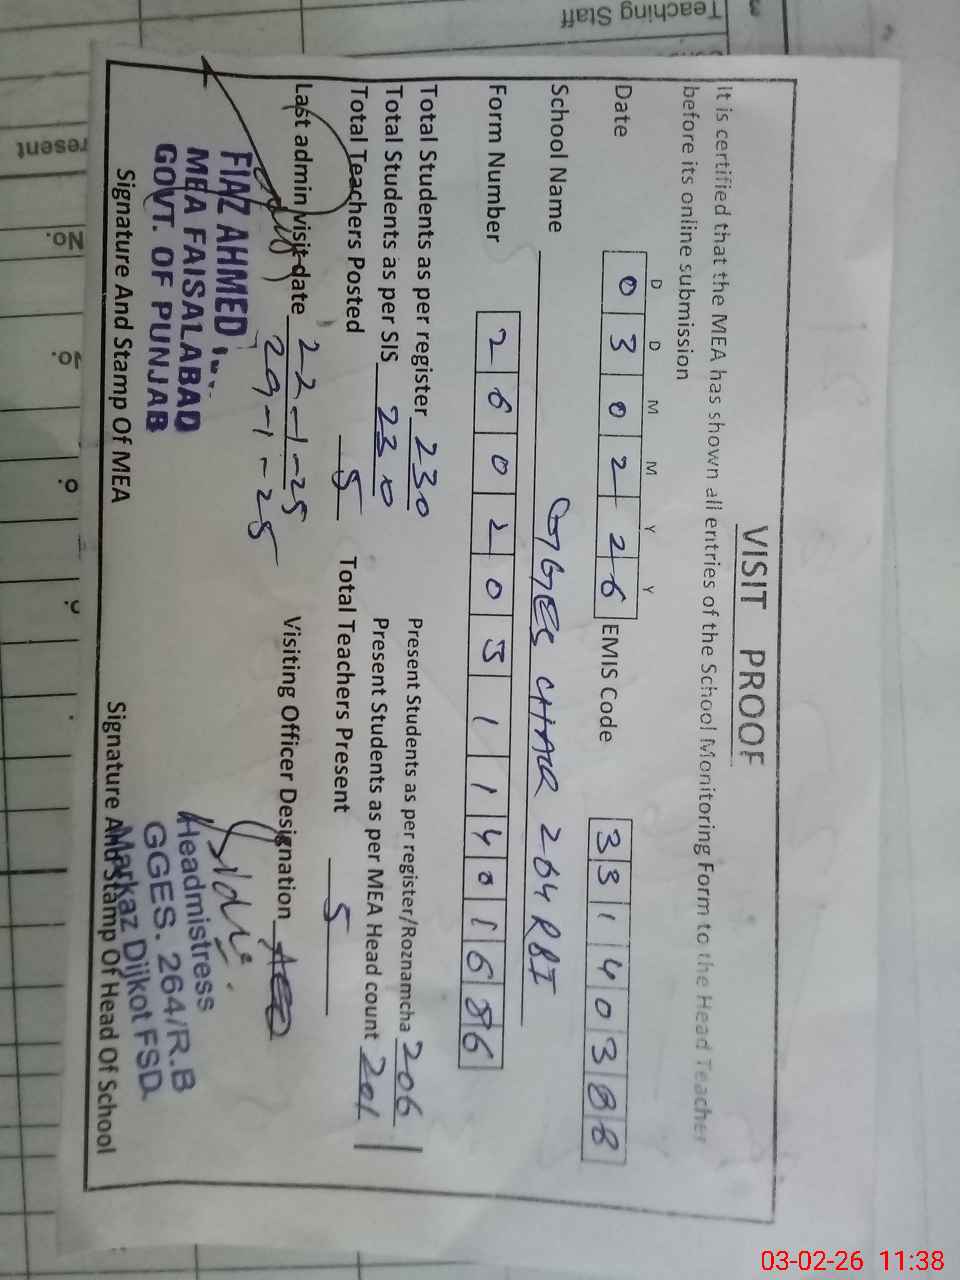 Teaching Staff
resent
No.
VISIT PROOF
It is certified that the MEA has shown all entries of the School Monitoring Form to the Head Teacher
before its online submission
D D M M Y Y
Date 0 3 0 2 2 6 EMIS Code 3 3 1 4 0 3 8 8
School Name GGES CHAK 264 RBI
Form Number 2 6 0 2 0 3 1 1 4 0 1 6 8 6
Total Students as per register 230 Present Students as per register/Roznamcha 206
Total Students as per SIS 230 Present Students as per MEA Head count 201
Total Teachers Posted 5 Total Teachers Present 5
Last admin visit date 22-1-25 Visiting Officer Designation AEO
29-1-25
FIAZ AHMED
MEA FAISALABAD
GOVT. OF PUNJAB
Signature And Stamp Of MEA
Headmistress
GGES. 264/R.B
Markaz Dijkot FSD
Signature And Stamp Of Head Of School
03-02-26 11:38